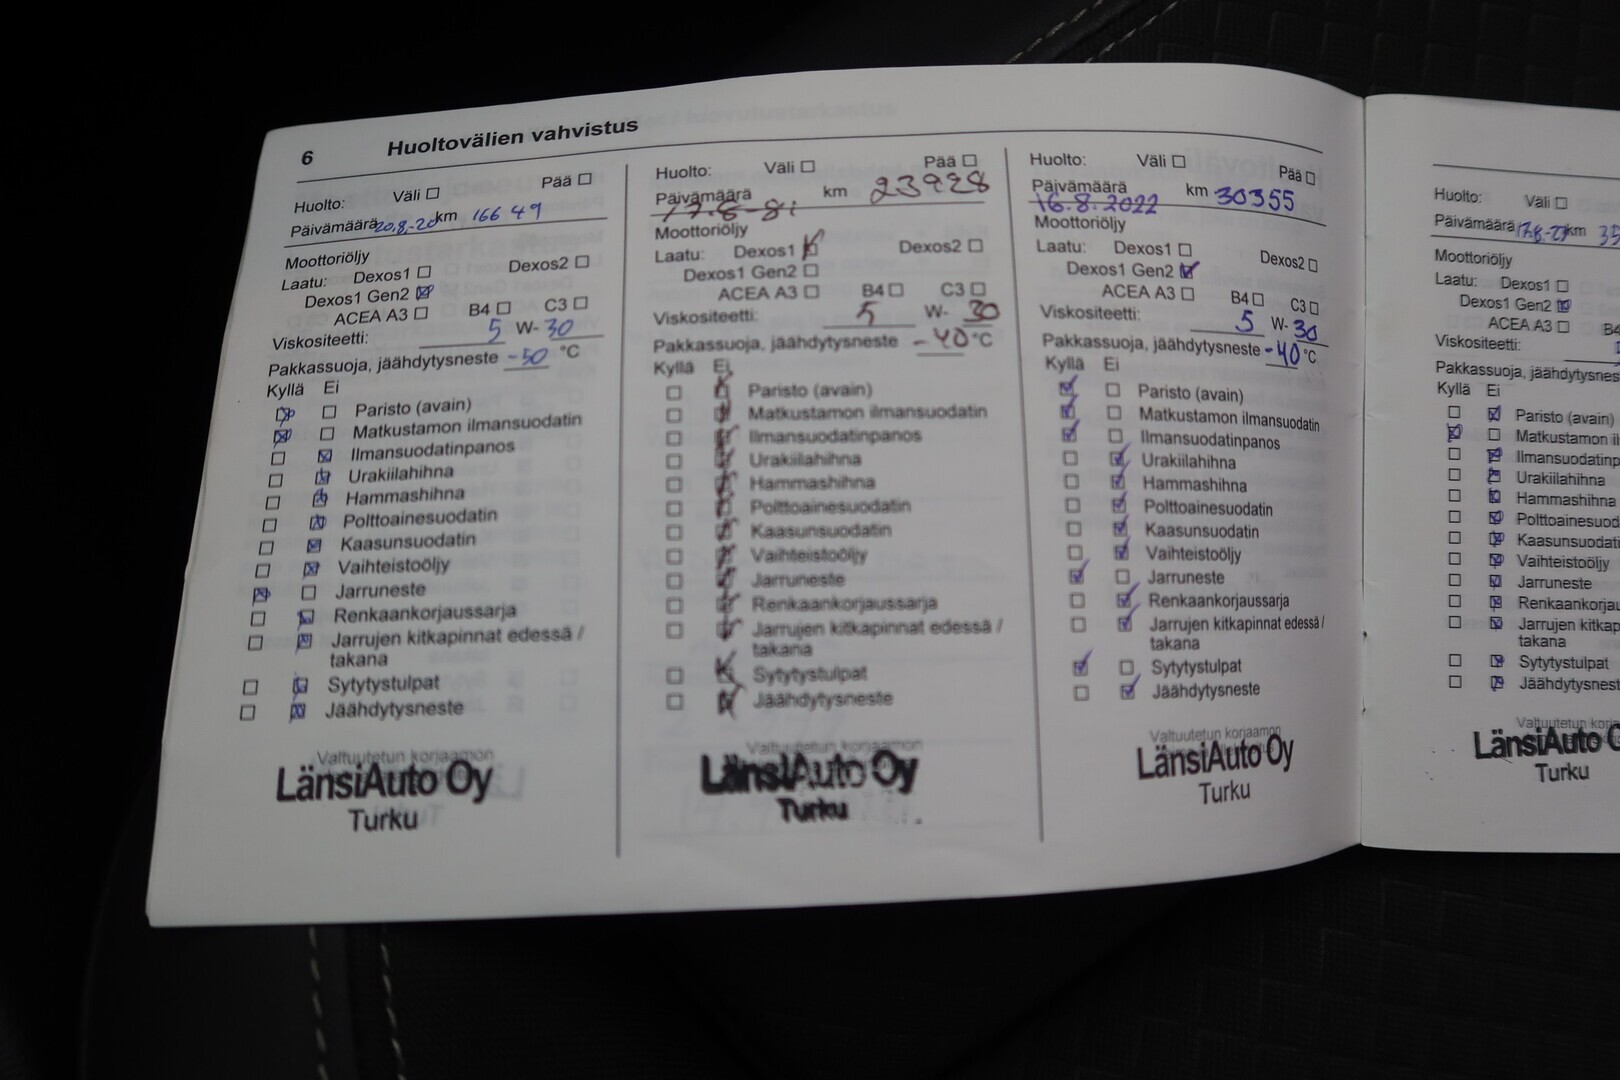 6 Huoltovälien vahvistus
Huolto: Väli ☐ Pää ☐
Päivämäärä 20.8-20 km 16649
Moottoriöljy
Laatu: Dexos1 ☐ Dexos2 ☐
Dexos1 Gen2 ☒
ACEA A3 ☐ B4 ☐ C3 ☐
Viskositeetti: 5 W- 30
Pakkassuoja, jäähdytysneste -50 °C
Kyllä Ei
☒ ☐ Paristo (avain)
☒ ☐ Matkustamon ilmansuodatin
☐ ☒ Ilmansuodatinpanos
☐ ☒ Urakiilahihna
☐ ☒ Hammashihna
☐ ☒ Polttoainesuodatin
☐ ☒ Kaasunsuodatin
☐ ☒ Vaihteistoöljy
☒ ☐ Jarruneste
☐ ☒ Renkaankorjaussarja
☐ ☒ Jarrujen kitkapinnat edessä /
takana
☐ ☒ Sytytystulpat
☐ ☒ Jäähdytysneste
Valtuutetun korjaamon
LänsiAuto Oy
Turku
Huolto: Väli ☐ Pää ☐
Päivämäärä 17.8-21 km 23928
Moottoriöljy
Laatu: Dexos1 ☒ Dexos2 ☐
Dexos1 Gen2 ☐
ACEA A3 ☐ B4 ☐ C3 ☐
Viskositeetti: 5 W- 30
Pakkassuoja, jäähdytysneste -40 °C
Kyllä Ei
☐ ☒ Paristo (avain)
☐ ☒ Matkustamon ilmansuodatin
☐ ☒ Ilmansuodatinpanos
☐ ☒ Urakiilahihna
☐ ☒ Hammashihna
☐ ☒ Polttoainesuodatin
☐ ☒ Kaasunsuodatin
☐ ☒ Vaihteistoöljy
☐ ☒ Jarruneste
☐ ☒ Renkaankorjaussarja
☐ ☒ Jarrujen kitkapinnat edessä /
takana
☐ ☒ Sytytystulpat
☐ ☒ Jäähdytysneste
Valtuutetun korjaamon
LänsiAuto Oy
Turku
Huolto: Väli ☐ Pää ☐
Päivämäärä 16.8.2022 km 30355
Moottoriöljy
Laatu: Dexos1 ☐ Dexos2 ☐
Dexos1 Gen2 ☑
ACEA A3 ☐ B4 ☐ C3 ☐
Viskositeetti: 5 W- 30
Pakkassuoja, jäähdytysneste -40 °C
Kyllä Ei
☑ ☐ Paristo (avain)
☑ ☐ Matkustamon ilmansuodatin
☑ ☐ Ilmansuodatinpanos
☐ ☑ Urakiilahihna
☐ ☑ Hammashihna
☐ ☑ Polttoainesuodatin
☐ ☑ Kaasunsuodatin
☐ ☑ Vaihteistoöljy
☑ ☐ Jarruneste
☐ ☑ Renkaankorjaussarja
☐ ☑ Jarrujen kitkapinnat edessä /
takana
☑ ☐ Sytytystulpat
☐ ☑ Jäähdytysneste
Valtuutetun korjaamon
LänsiAuto Oy
Turku
Huolto: Väli ☐
Päivämäärä km 35
Moottoriöljy
Laatu: Dexos1 ☐
Dexos1 Gen2 ☒
ACEA A3 ☐ B4
Viskositeetti:
Pakkassuoja, jäähdytysnes
Kyllä Ei
☐ ☒ Paristo (avain)
☒ ☐ Matkustamon il
☐ ☒ Ilmansuodatinp
☐ ☒ Urakiilahihna
☐ ☒ Hammashihna
☐ ☒ Polttoainesuod
☐ ☒ Kaasunsuodati
☐ ☒ Vaihteistoöljy
☐ ☒ Jarruneste
☐ ☒ Renkaankorjau
☐ ☒ Jarrujen kitkap
takana
☐ ☒ Sytytystulpat
☐ ☒ Jäähdytysnest
Valtuutetun korja
LänsiAuto O
Turku